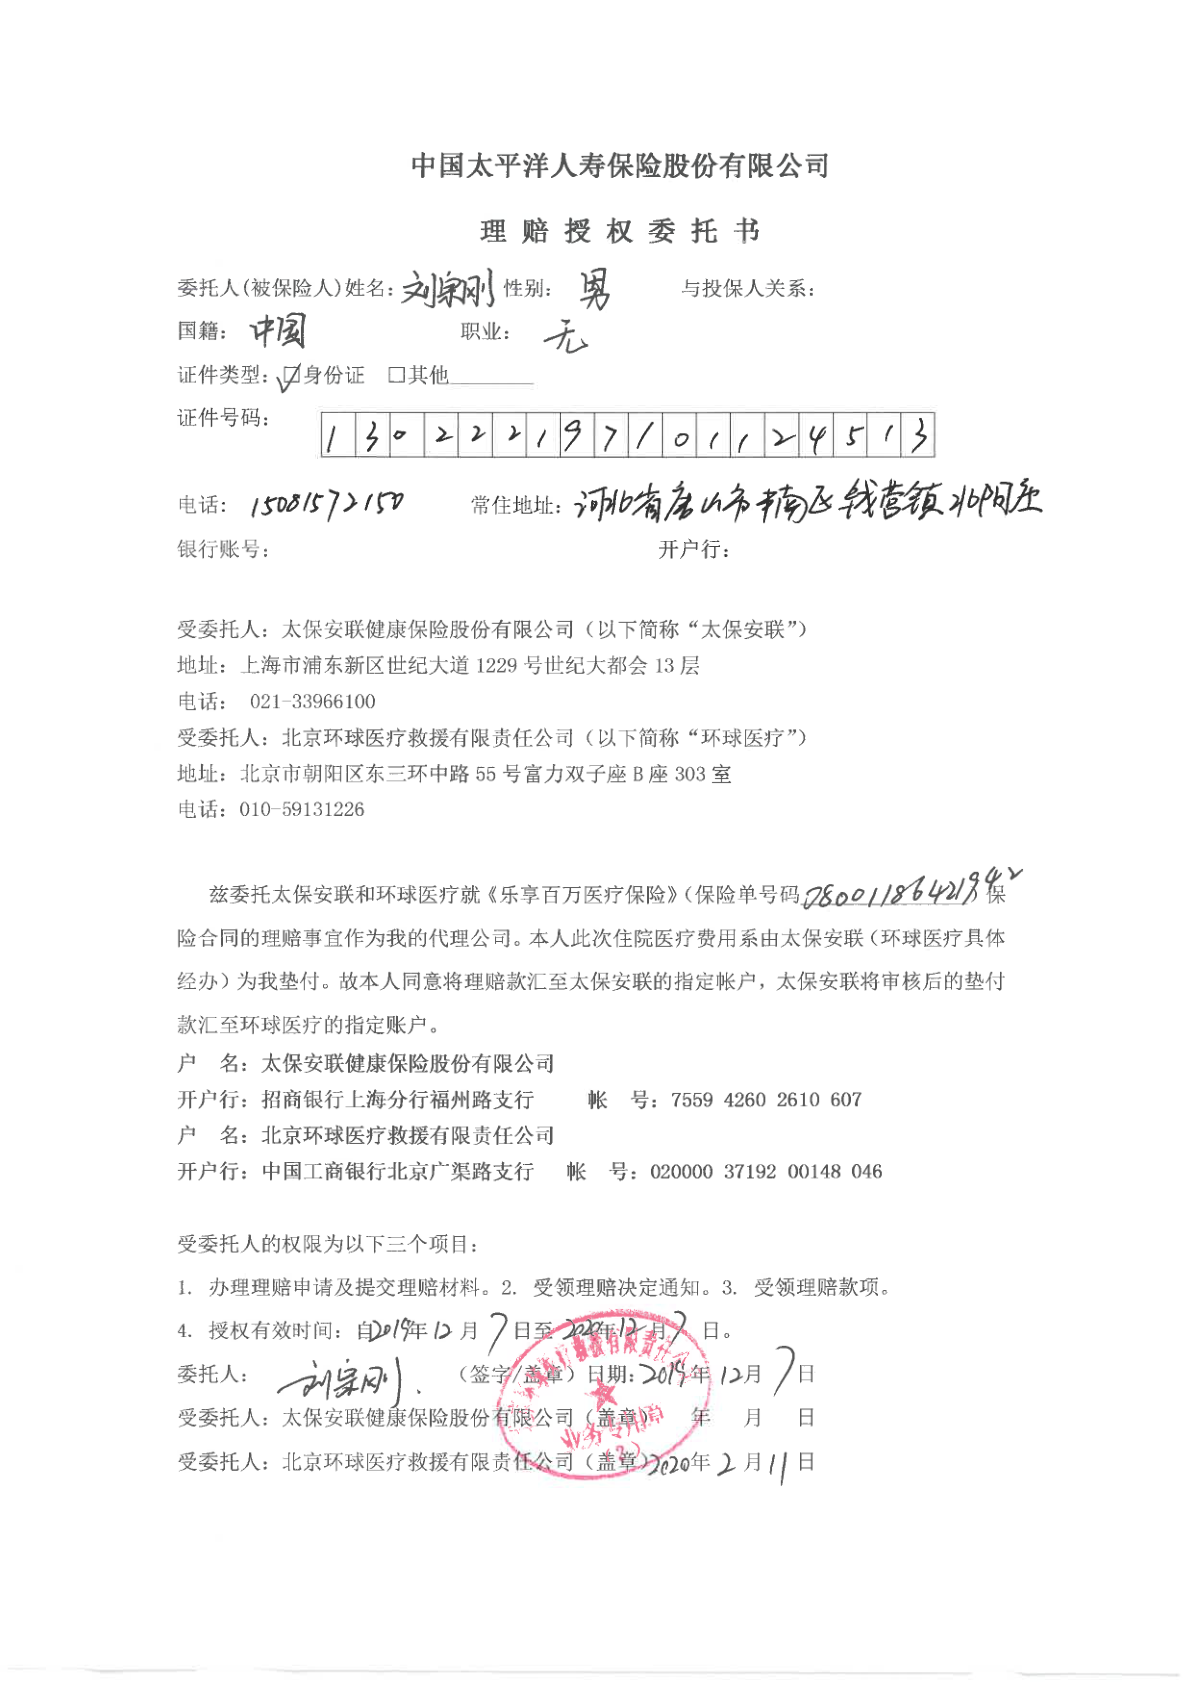 中国太平洋人寿保险股份有限公司
理 赔 授 权 委 托 书
委托人(被保险人)姓名：刘宗刚 性别： 男 与投保人关系：
国籍： 中国 职业： 无
证件类型：☑身份证 □其他________
证件号码： 130222197101124513
电话： 15081572150 常住地址：河北省唐山市丰南区钱营镇北阳庄
银行账号： 开户行：
受委托人：太保安联健康保险股份有限公司（以下简称“太保安联”）
地址：上海市浦东新区世纪大道 1229 号世纪大都会 13 层
电话： 021-33966100
受委托人：北京环球医疗救援有限责任公司（以下简称“环球医疗”）
地址：北京市朝阳区东三环中路 55 号富力双子座 B 座 303 室
电话：010-59131226
兹委托太保安联和环球医疗就《乐享百万医疗保险》（保险单号码080011864219942）保
险合同的理赔事宜作为我的代理公司。本人此次住院医疗费用系由太保安联（环球医疗具体
经办）为我垫付。故本人同意将理赔款汇至太保安联的指定帐户，太保安联将审核后的垫付
款汇至环球医疗的指定账户。
户 名：太保安联健康保险股份有限公司
开户行：招商银行上海分行福州路支行 帐 号：7559 4260 2610 607
户 名：北京环球医疗救援有限责任公司
开户行：中国工商银行北京广渠路支行 帐 号：020000 37192 00148 046
受委托人的权限为以下三个项目：
1. 办理理赔申请及提交理赔材料。2. 受领理赔决定通知。3. 受领理赔款项。
4. 授权有效时间：自2019年 12 月 7 日至 2020年12月7 日。
委托人： 刘宗刚. （签字/盖章）日期：2019年 12月 7日
受委托人：太保安联健康保险股份有限公司（盖章） 年 月 日
受委托人：北京环球医疗救援有限责任公司（盖章）2020年 2 月 11 日
业务专用章
(2)